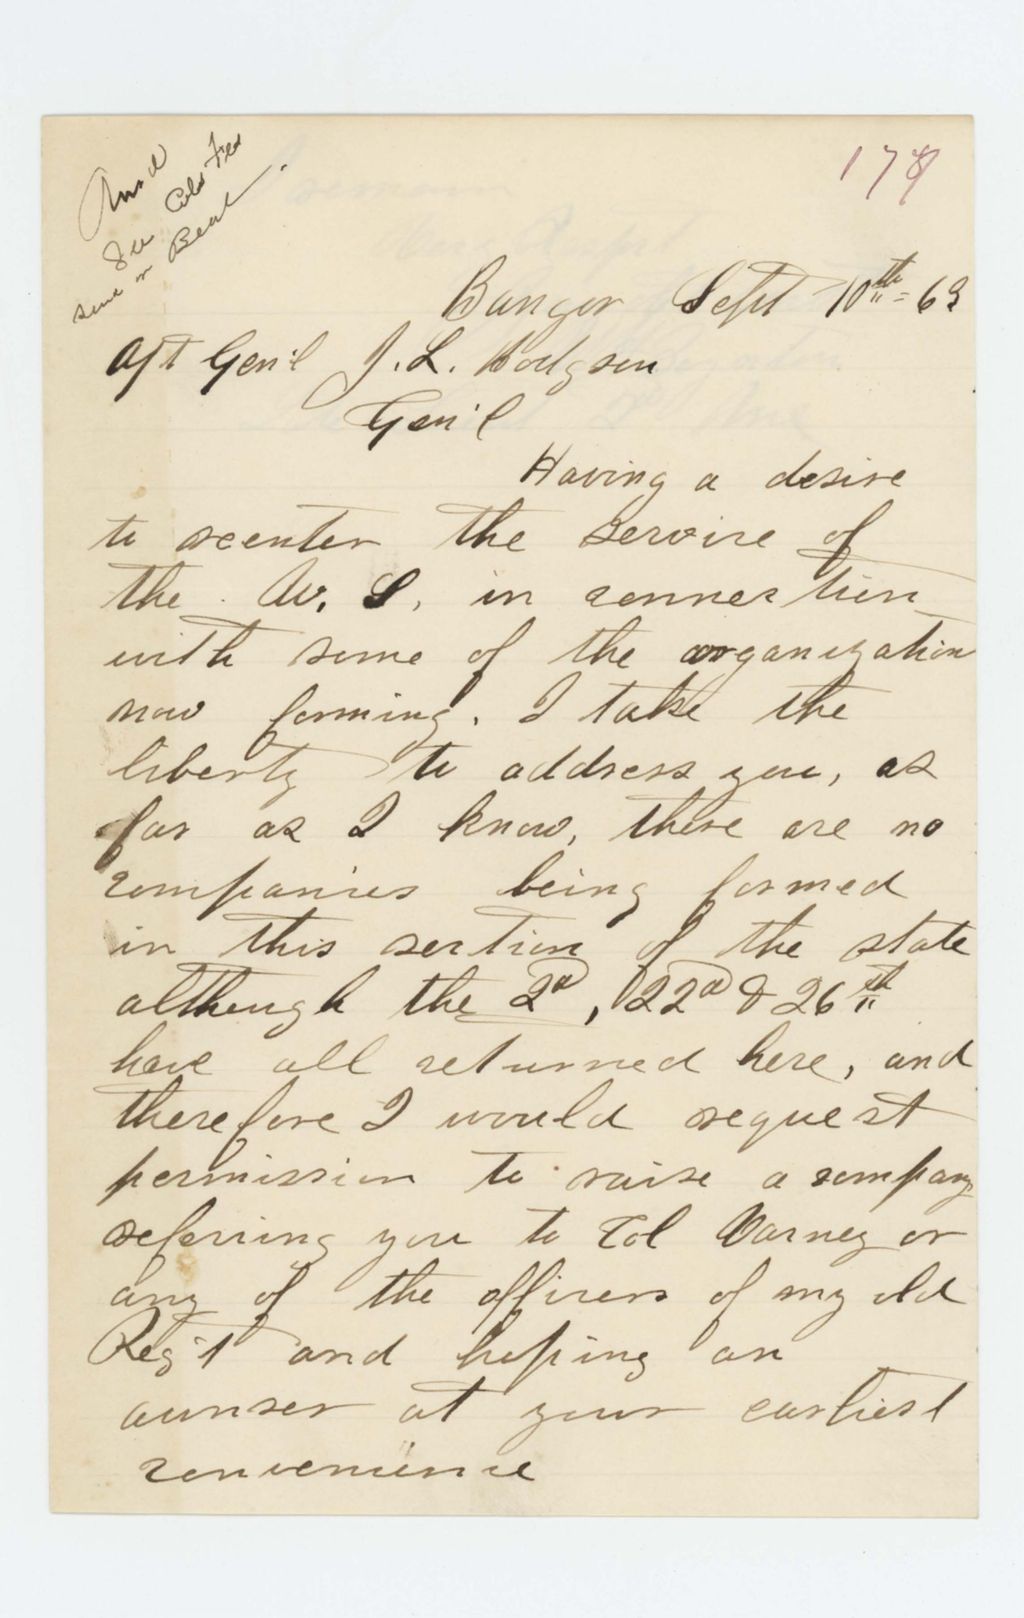 Ansd
See Cols Fles
same or Beal.
178
Bangor Sept 10th = 63
Ajt Gen'l J. L. Hodgson
Gen'l
Having a desire
to reenter the service of
the U. S. in connection
with some of the organization
now forming. I take the
liberty to address you, as
far as I know, there are no
companies being formed
in this section of the state
although the 2d, 22d & 26th
have all returned here, and
therefore I would request
permission to raise a company
referring you to Col Varney or
any of the officers of my old
Reg't and hoping an
aunser at your earliest
convenience